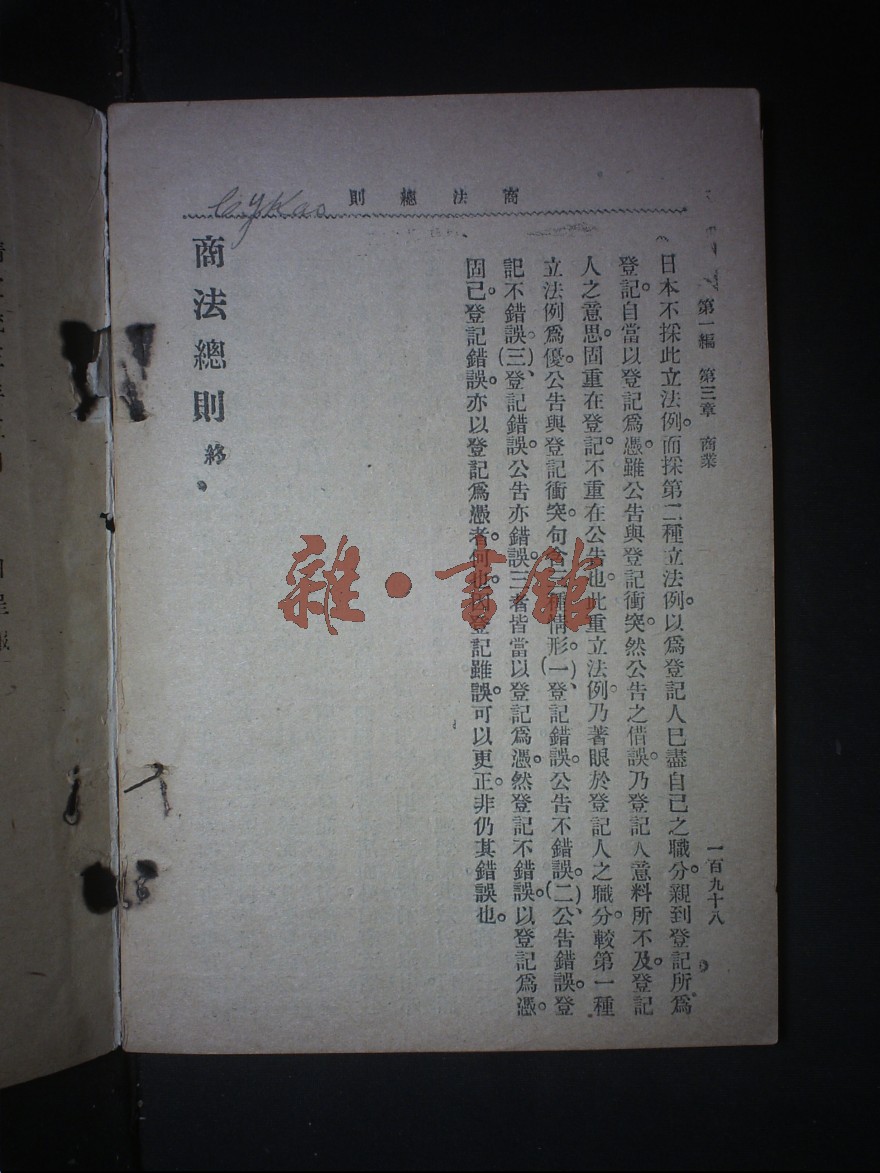 商法總則
第一編　第三章　商業
一百九十八
日本不採此立法例。而採第二種立法例。以爲登記人已盡自己之職分。親到登記所爲
登記。自當以登記爲憑。雖公告與登記衝突。然公告之借誤。乃登記人意料所不及。登記
人之意思。固重在登記。不重在公告也。此重立法例。乃著眼於登記人之職分。較第一種
立法例爲優。公告與登記衝突。句含三種情形。(一)、登記錯誤。公告不錯誤。(二)、公告錯誤。登
記不錯誤。(三)、登記錯誤。公告亦錯誤。三者皆當以登記爲憑。然登記不錯誤。以登記爲憑。
固已。登記錯誤。亦以登記爲憑者。何也。因登記雖誤。可以更正。非仍其錯誤也。
商法總則 終
雜·書館